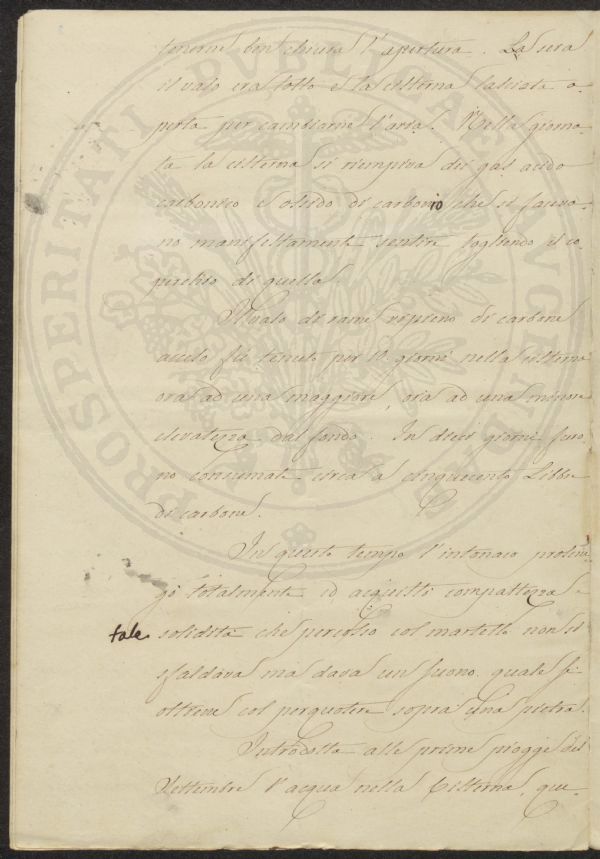 tenerne ben chiusa l'apertura. La sera
il vaso era tolto e la cisterna lasciata a-
perta per cambiarne l'aria. Nella giorna-
ta la cisterna si riempiva di gas acido
carbonico e ossido di carbonio che si faceva-
no manifestamente sentire togliendo il co-
perchio di quella.
Il vaso di rame ripieno di carbone
acceso fù tenuto per 10. giorni nella cisterna
ora ad una maggiore, ora ad una minore
elevatezza dal fondo. In dieci giorni furo-
no consumate circa a cinquecento Libbre
di carbone.
In questo tempo l'intonaco prosciu-
gò totalmente ed acquistò compattezza e
tale solidità che percosso col martello non si
sfaldava ma dava un suono quale si
ottiene col perquotere sopra una pietra.
Introdotta alle prime piogge del
Settembre l'acqua nella Cisterna, que-
PROSPERITATI PUBLICAE AUGENDAE